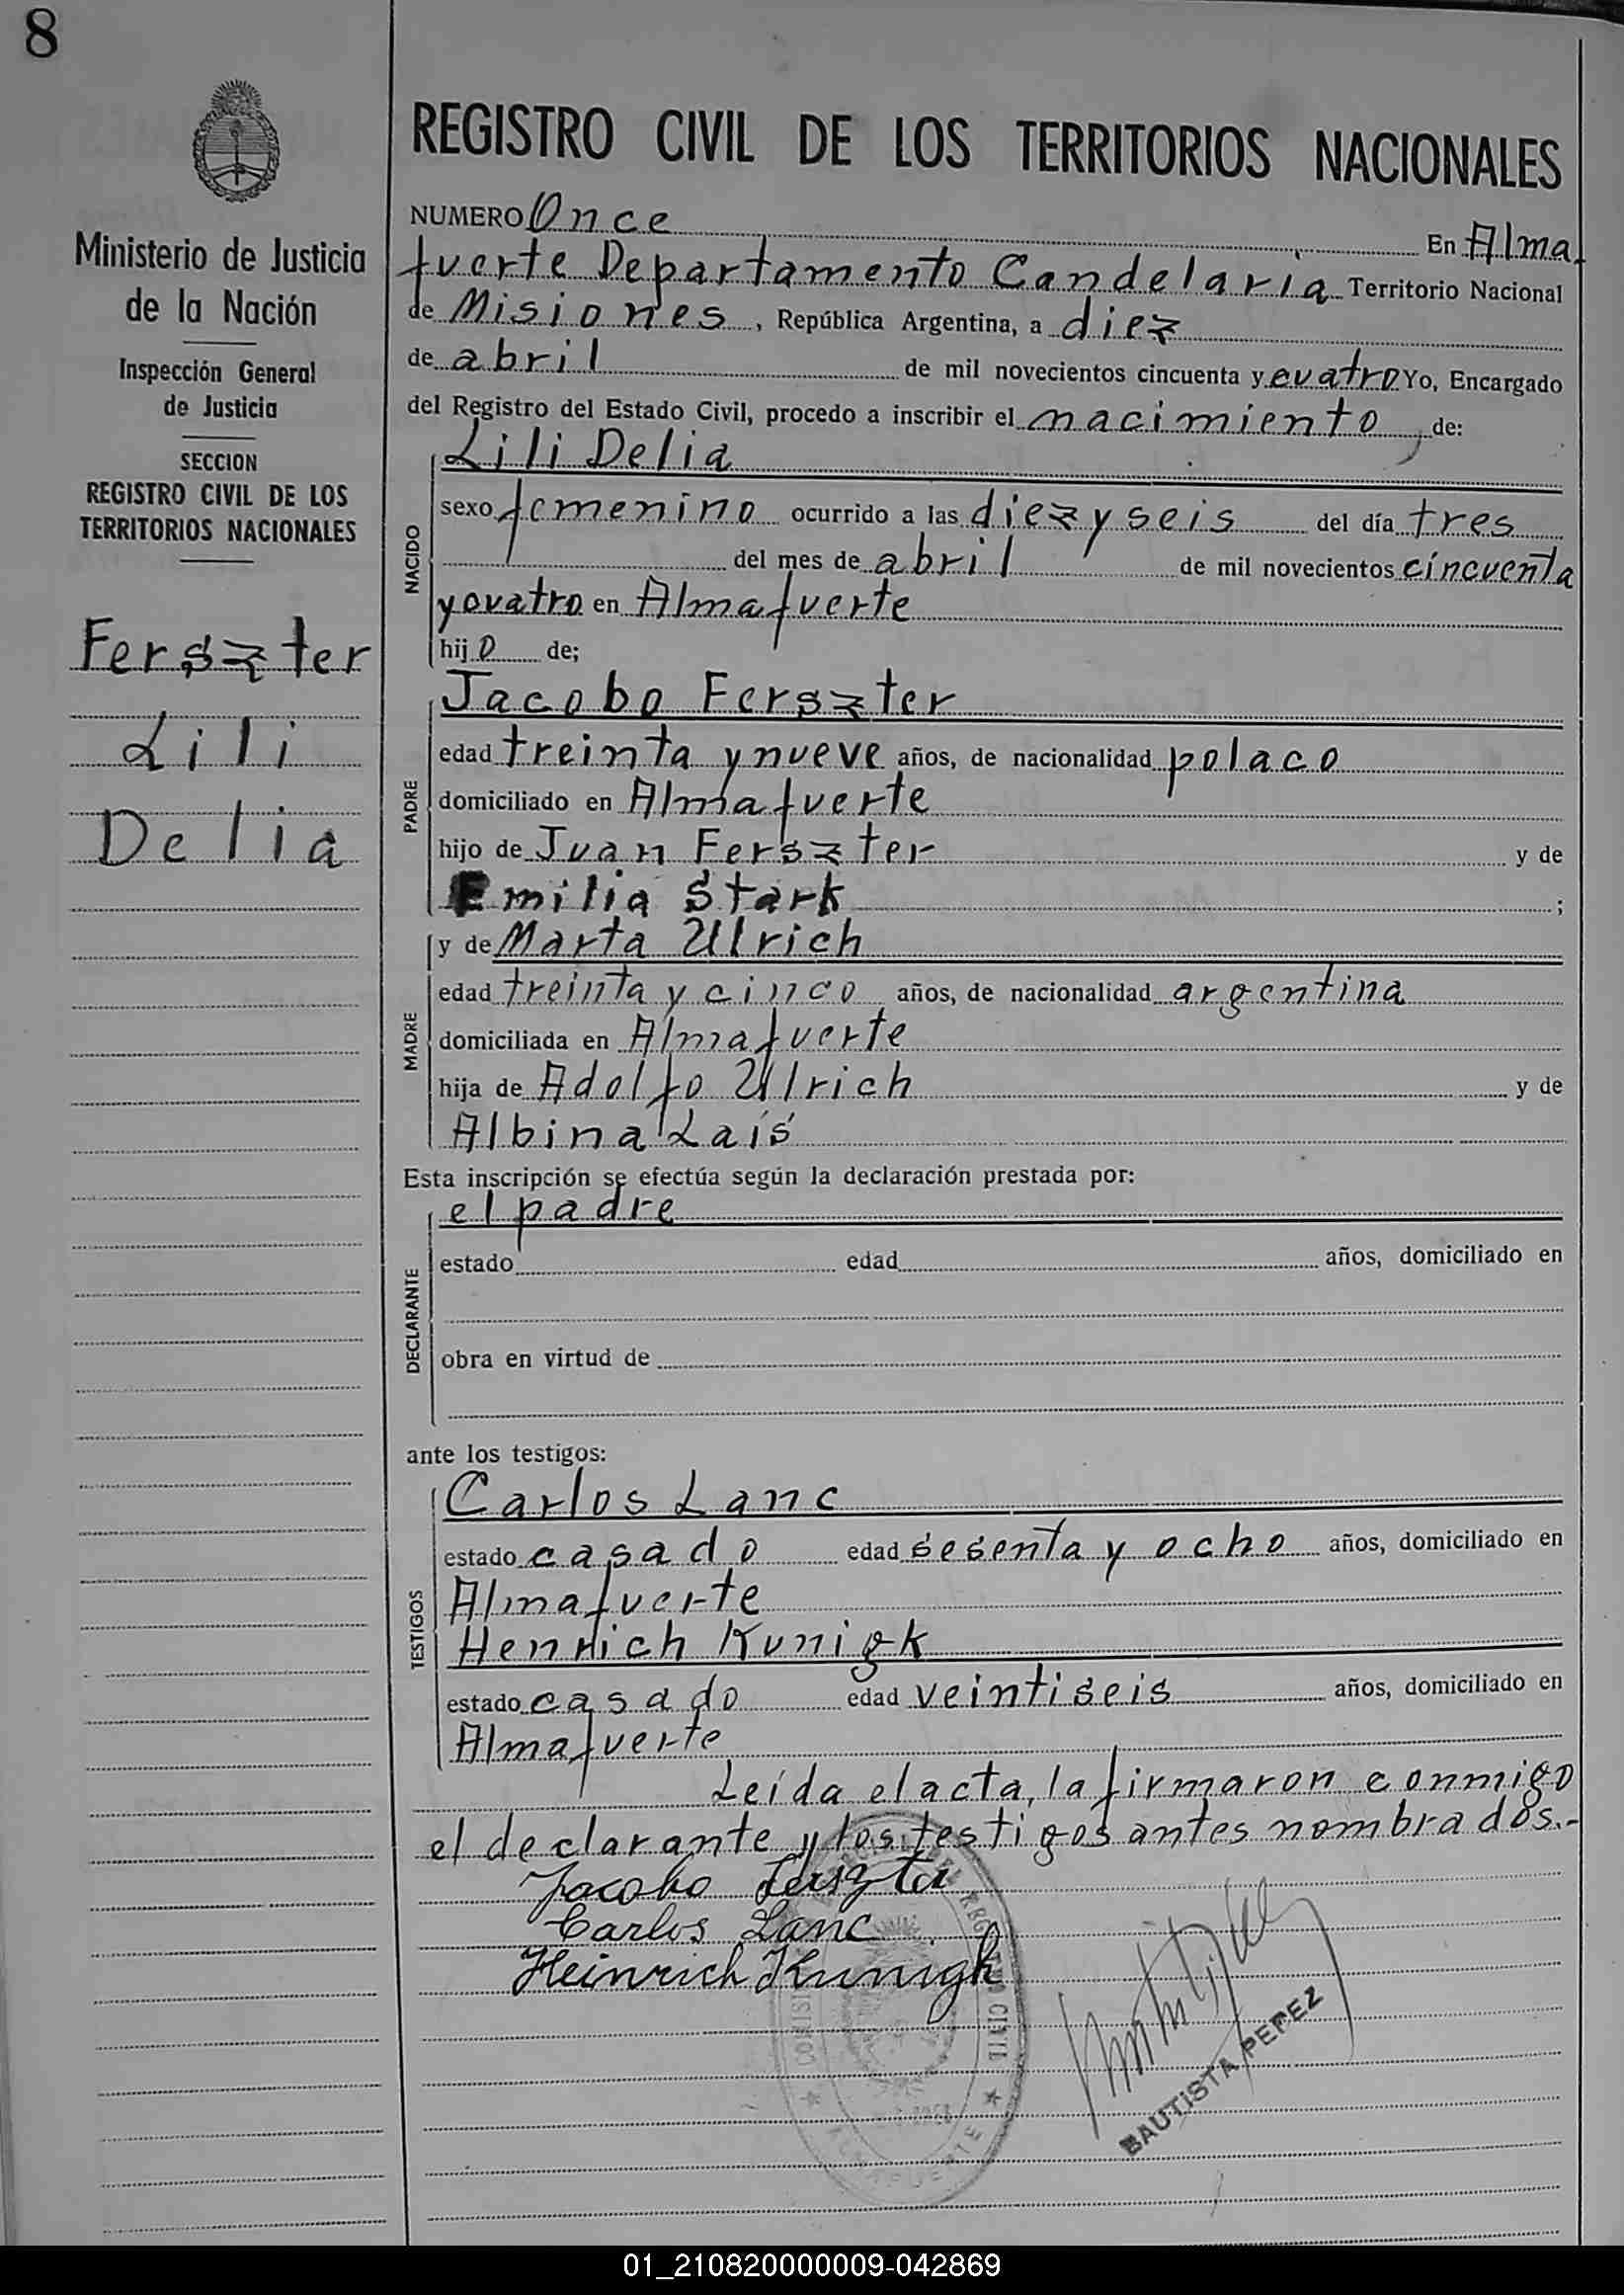 8
REGISTRO CIVIL DE LOS TERRITORIOS NACIONALES
Ministerio de Justicia
de la Nación
Inspección General
de Justicia
SECCION
REGISTRO CIVIL DE LOS
TERRITORIOS NACIONALES
Ferszter
Lili
Delia
NUMERO Once En Alma
fuerte Departamento Candelaria Territorio Nacional
de Misiones, República Argentina, a diez
de abril de mil novecientos cincuenta y cuatro Yo, Encargado
del Registro del Estado Civil, procedo a inscribir el nacimiento, de:
NACIDO
Lili Delia
sexo femenino ocurrido a las diez y seis del día tres
del mes de abril de mil novecientos cincuenta
y cuatro en Almafuerte
hijo de;
PADRE
Jacobo Ferszter
edad treinta y nueve años, de nacionalidad polaco
domiciliado en Almafuerte
hijo de Juan Ferszter y de
Emilia Stark ;
MADRE
y de Marta Ulrich
edad treinta y cinco años, de nacionalidad argentina
domiciliada en Almafuerte
hija de Adolfo Ulrich y de
Albina Lais
Esta inscripción se efectúa según la declaración prestada por:
DECLARANTE
el padre
estado edad años, domiciliado en
obra en virtud de
ante los testigos:
TESTIGOS
Carlos Lanc
estado casado edad sesenta y ocho años, domiciliado en
Almafuerte
Henrich Kunigk
estado casado edad veintiseis años, domiciliado en
Almafuerte
Leída el acta, la firmaron conmigo
el declarante y los testigos antes nombrados.-
Jacobo Ferszter
Carlos Lanc
Heinrich Kunigk
REGISTRO CIVIL
ALMAFUERTE
BAUTISTA PEREZ
01_210820000009-042869